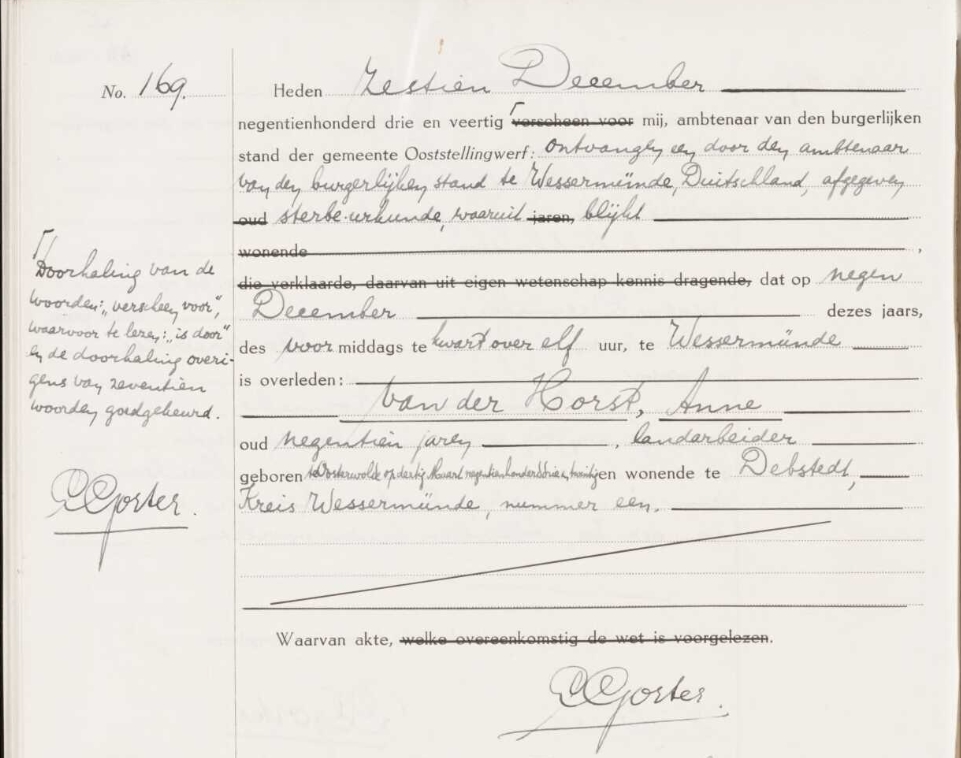 No. 169.
Heden Zestien December
negentienhonderd drie en veertig ⌈ verscheen voor mij, ambtenaar van den burgerlijken
stand der gemeente Ooststellingwerf: Ontvangen een door den ambtenaar
van den burgerlijken stand te Wessermünde, Duitschland, afgegeven
oud sterbe-urkunde, waaruit jaren, blijkt
wonende ,
die verklaarde, daarvan uit eigen wetenschap kennis dragende, dat op negen
December dezes jaars,
des voor middags te kwart over elf uur, te Wessermünde
is overleden:
van der Horst, Anne
oud negentien jaren , landarbeider
geboren te Oosterwolde op dertig Maart negentienhonderd vier en twintig en wonende te Debstedt,
Kreis Wessermünde, nummer een.
Waarvan akte, welke overeenkomstig de wet is voorgelezen.
GGorter.
⌈ Doorhaling van de
woorden: „verscheen voor",
waarvoor te lezen: „is door"
en de doorhaling overi-
gens van zeventien
woorden goedgekeurd.
GGorter.